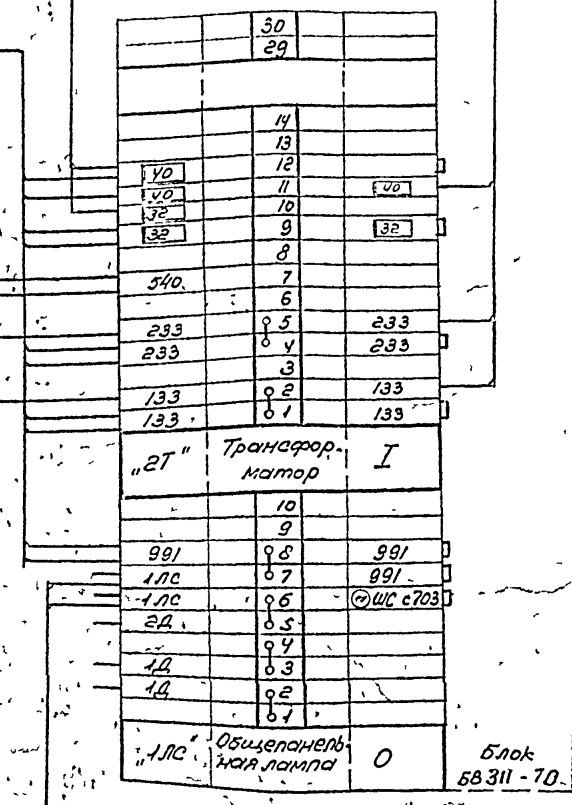 30
29
14
13
40 12
40 11 40
32 10
32 9 32
8
540 7
6
233 5 233
233 4 233
3
133 2 133
133 1 133
„2Т" Трансфор- I
матор
10
9
991 8 991
1ЛС 7 991
1ЛС 6 ~ ШС с703
2Д 5
4
1Д 3
1Д 2
1
„1ЛС" Общепанель- О
ная лампа
Блок
БВ311-70